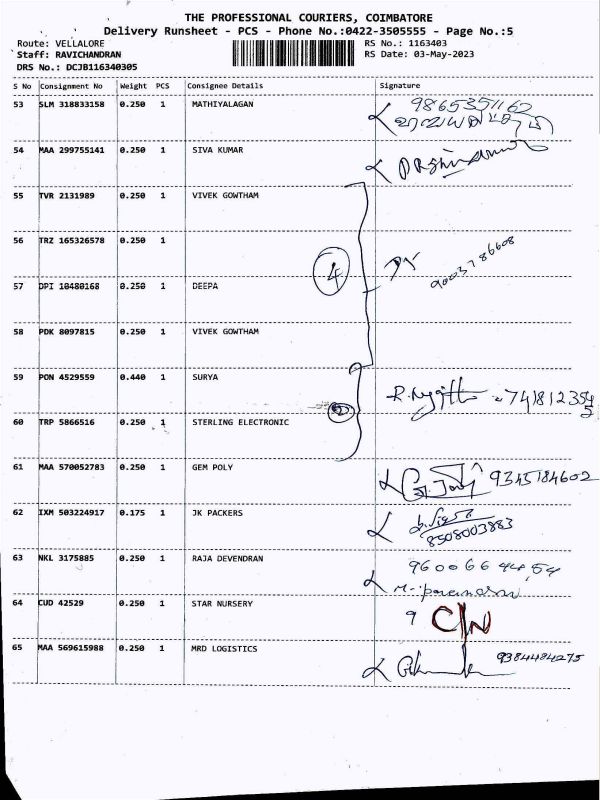 THE PROFESSIONAL COURIERS, COIMBATORE
Delivery Runsheet - PCS - Phone No.:0422-3505555 - Page No.:5
Route: VELLALORE RS No.: 1163403
Staff: RAVICHANDRAN RS Date: 03-May-2023
DRS No.: DCJB116340305
S No Consignment No Weight PCS Consignee Details Signature
53 SLM 318833158 0.250 1 MATHIYALAGAN 9865351162
54 MAA 299755141 0.250 1 SIVA KUMAR
55 TVR 2131989 0.250 1 VIVEK GOWTHAM
56 TRZ 165326578 0.250 1 4 9003786608
57 DPI 10480168 0.250 1 DEEPA
58 PDK 8097815 0.250 1 VIVEK GOWTHAM
59 PON 4529559 0.440 1 SURYA
60 TRP 5866516 0.250 1 STERLING ELECTRONIC 2
61 MAA 570052783 0.250 1 GEM POLY 9345184602
62 IXM 503224917 0.175 1 JK PACKERS 8508003883
63 NKL 3175885 0.250 1 RAJA DEVENDRAN 9600664454
64 CUD 42529 0.250 1 STAR NURSERY 9 C/N
65 MAA 569615988 0.250 1 MRD LOGISTICS 9384484275